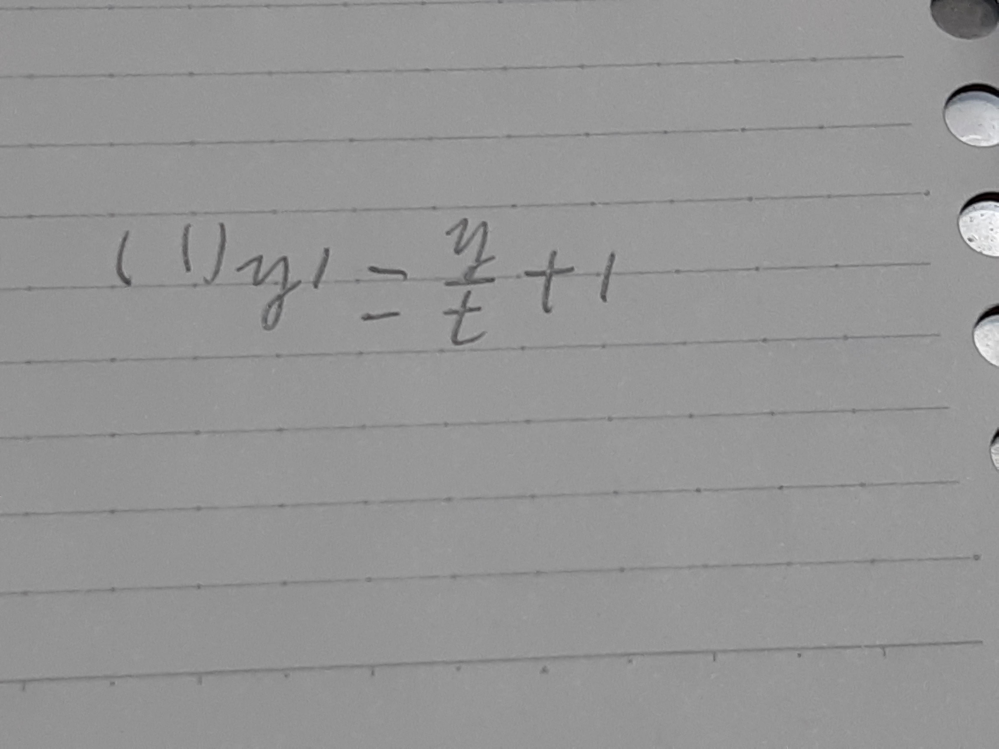 (1) y' = y/t + 1